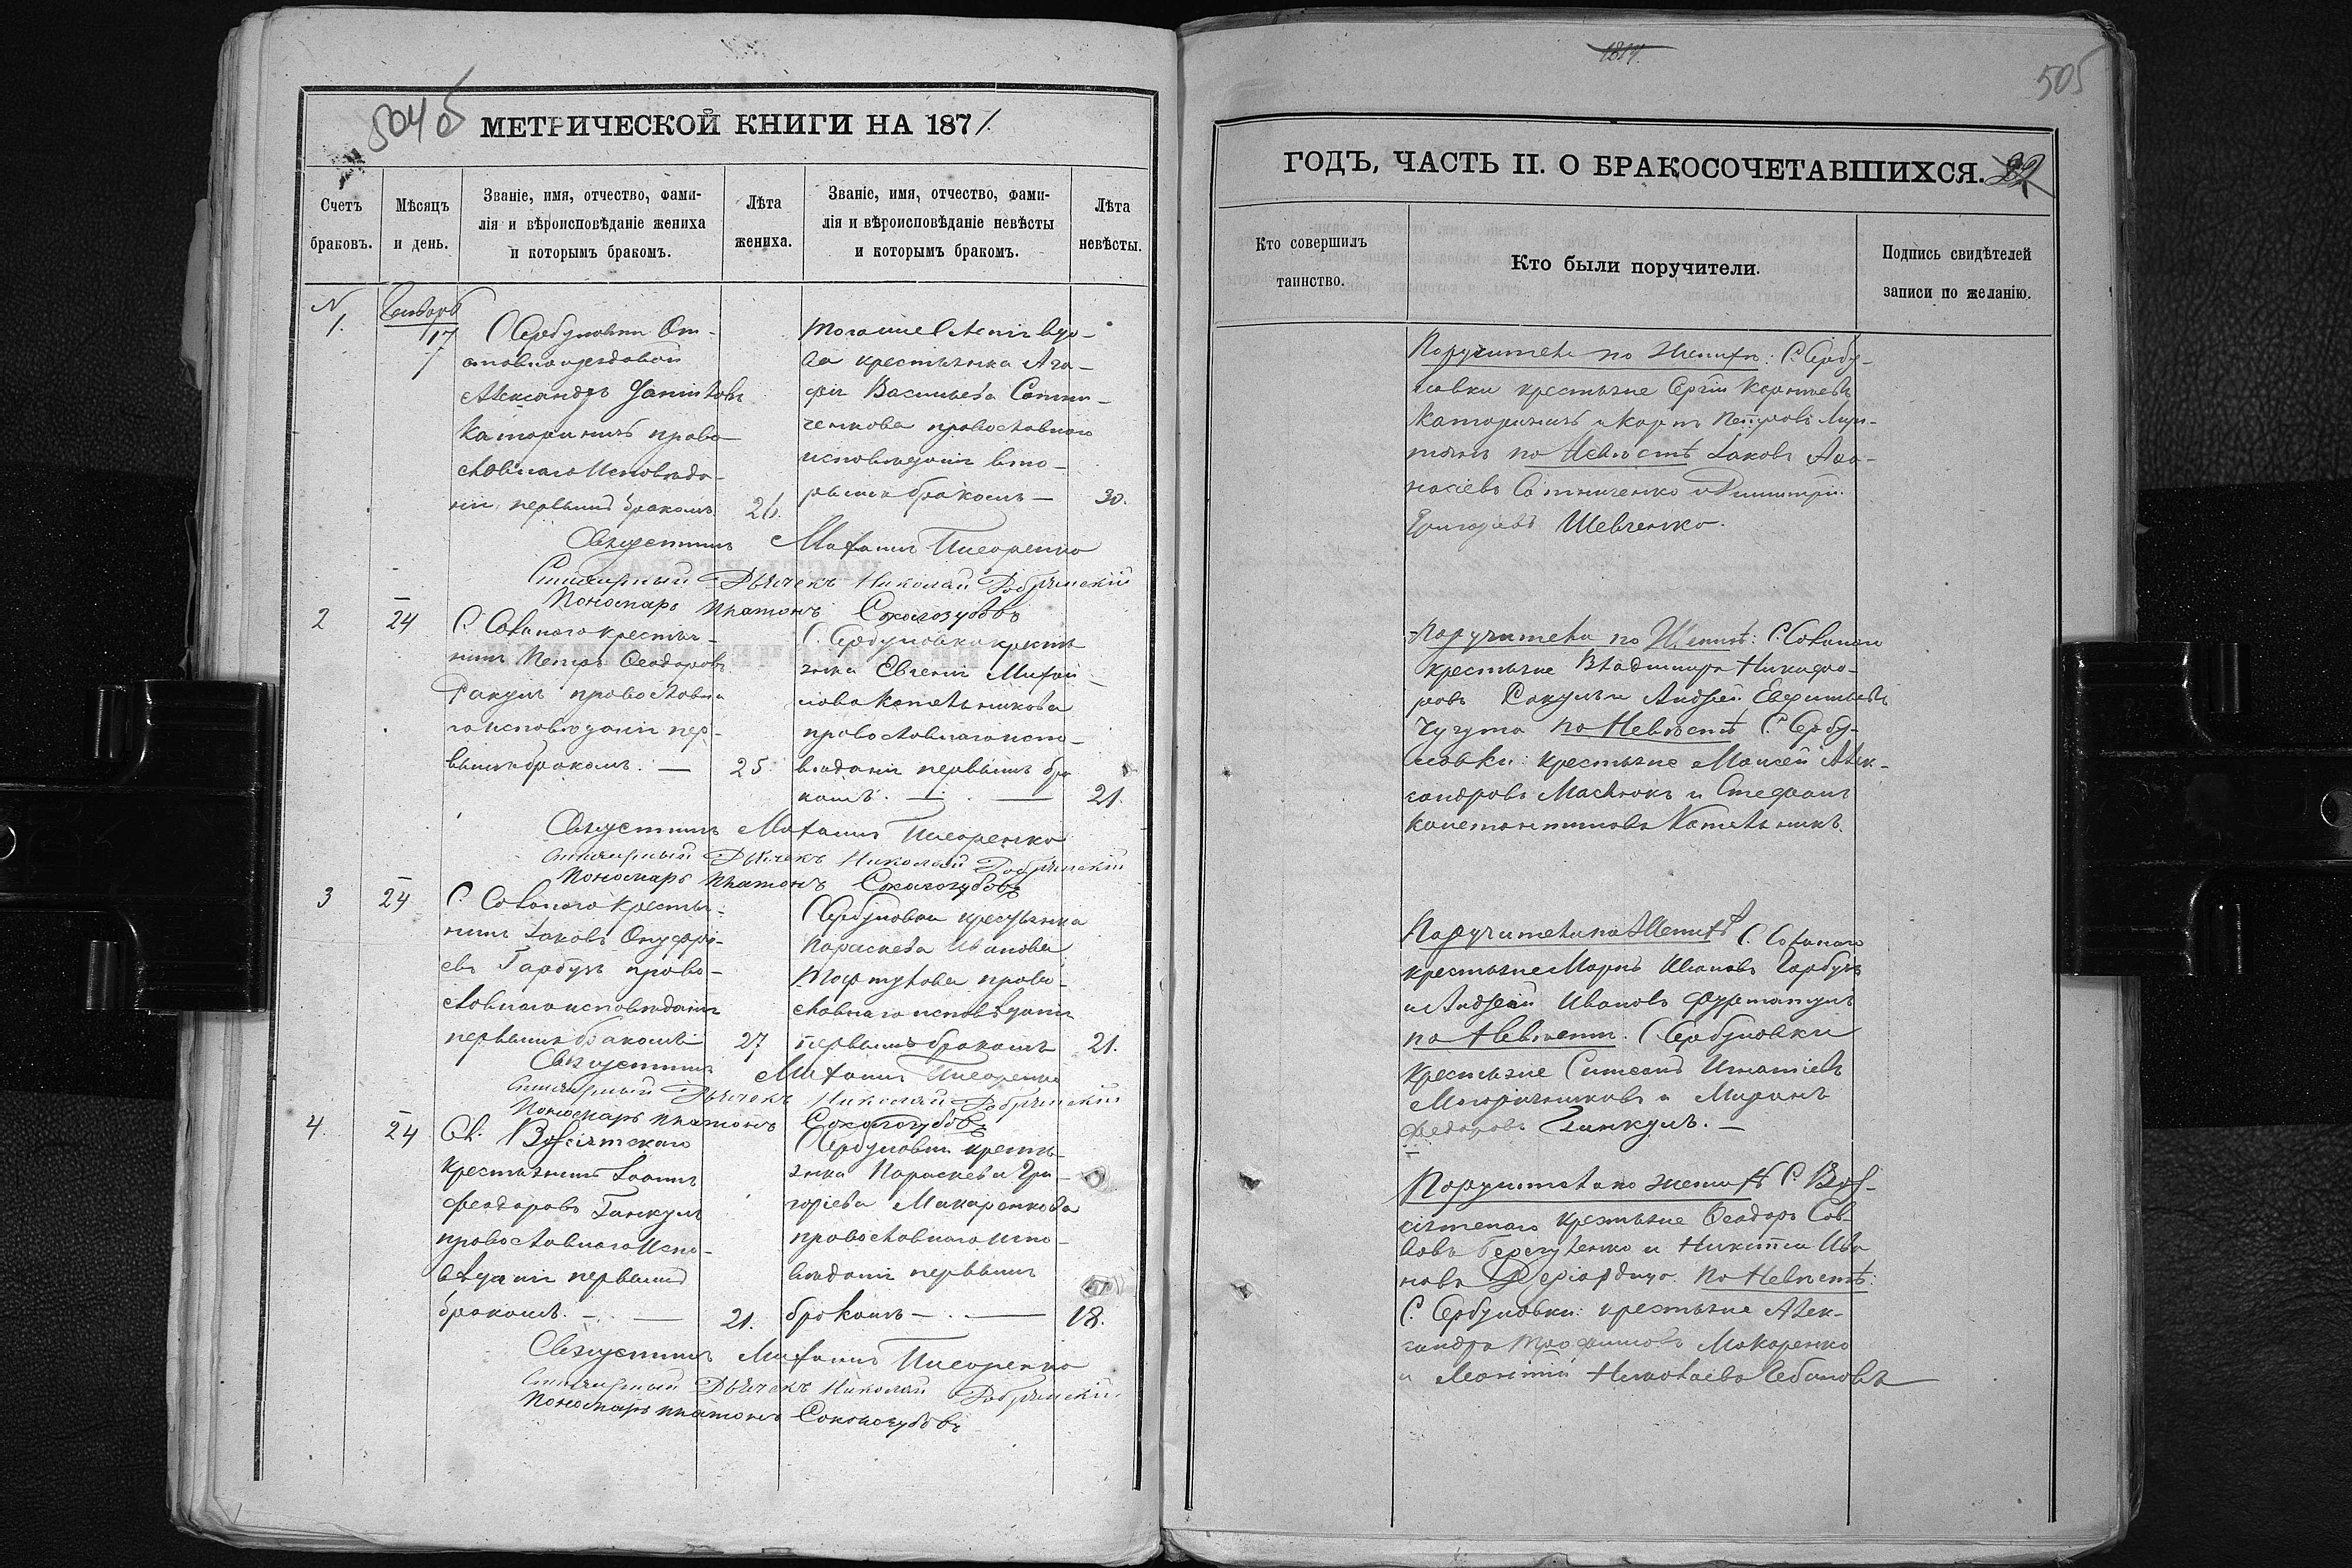 504 об
МЕТРИЧЕСКОЙ КНИГИ НА 1871.
Счетъ браковъ.
Мѣсяцъ и день.
Званіе, имя, отчество, фами-
лія и вѣроисповѣданіе жениха
и которымъ бракомъ.
Лѣта жениха.
Званіе, имя, отчество, фами-
лія и вѣроисповѣданіе невѣсты
и которымъ бракомъ.
Лѣта невѣсты.
N 1.
Генварь 17
С Сербуловки От-
Александръ
Каториничъ право-
славнаго Исповѣда-
нія, первымъ бракомъ
26.
Тогоже вдо-
ва крестьянка Ага-
фія Васильева Сотни-
ченкова православнаго
исповѣданія вто-
рымъ бракомъ —
30.
Священникъ Михаилъ Писаренко
Дьячекъ Николай Добрянскій
Пономарь Платонъ Сокологубовъ
2
24
С. Соланаго крестья-
нинъ Петръ Ѳеодоровъ
православна
го исповѣданія пер-
вымъ бракомъ. —
25.
С. Сербуловки кресть
янка Евгенія Михай
лова Котельникова
православнаго испо-
вѣданія первымъ бра
комъ. —
21.
Священникъ Михаилъ Писаренко
Дьячекъ Николай Добрянскій
Пономарь Платонъ Сокологубовъ
3
24
С. Соланаго Крестья-
нинъ Іаковъ Онуфрі-
евъ Гарбузъ право-
славнаго исповѣданія
первымъ бракомъ
27
С Сербуловки крестьянка
Параскева Иванова
право-
славнаго исповѣданія
первымъ бракомъ
21.
Священникъ Михаилъ Писаренко
Дьячекъ Николай Добрянскій
Пономарь Платонъ Сокологубовъ
4.
24
крестьянинъ Іоаннъ
Феодоровъ Ганкулъ
православнаго Испо-
вѣданія первымъ
бракомъ. —
21.
С Сербуловки кресть-
янка Параскева Гри-
горіева Макаренкова
православнаго испо-
вѣданія первымъ
бракомъ — . —
18.
Священникъ Михаилъ Писаренко
Дьячекъ Николай Добрянскій
Пономарь Платонъ Сокологубовъ
505
ГОДЪ, ЧАСТЬ II. О БРАКОСОЧЕТАВШИХСЯ.
Кто совершилъ таинство.
Кто были поручители.
Подпись свидѣтелей
записи по желанію.
Поручители по Женихѣ: С. Сербу-
ловки крестьяне Сергій Корніевъ
Каториничъ и Карпъ Петровъ
по Невѣстѣ Іаковъ Аѳа-
насіевъ Сотниченко и Димитрій
Григорьевъ Шевченко.
Поручители по Женихѣ: С. Соланаго
крестьяне Владимиръ Никифо-
ровъ и Андрей
Чугута по Невѣстѣ С. Сербу-
ловки: крестьяне Моисей Алек-
сандровъ Маслюкъ и Стефанъ
Константиновъ Котельникъ.
Поручители по Женихѣ С. Соланаго
крестьяне Маркъ Ивановъ Гарбузъ
и Андрей Ивановъ
по Невѣстѣ. С Сербуловки
Крестьяне Симеонъ Игнатіевъ
и Миронъ
Федоровъ Ганкулъ. —
Поручители по женихѣ С
крестьяне Ѳеодоръ Сав-
и Никита Ива
новъ По Невѣстѣ:
С. Сербуловки: крестьяне Алек-
сандръ Трофимовъ Макаренко
и Леонтій Николаевъ